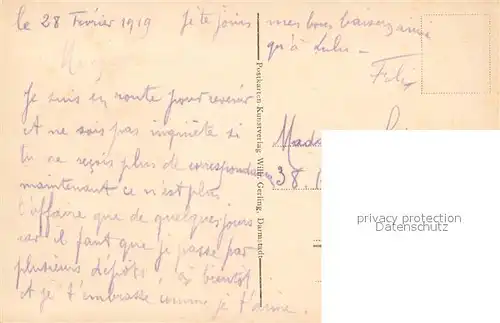 le 28 Février 1919
Je te joins
mes bons baisers ainsi
qu'à Lulu -
Je suis en route pour revenir
A ne sois pas inquiète si
tu ne reçois plus de correspondance
maintenant ce n'est plus
l'affaire que de quelques jours
car il faut que je passe par
plusieurs dépôts. à bientôt
et je t'embrasse comme je t'aime.
Postkarten Kunstverlag Wilh. Gerling, Darmstadt
Mada
38.
privacy protection
www.oldthing.de